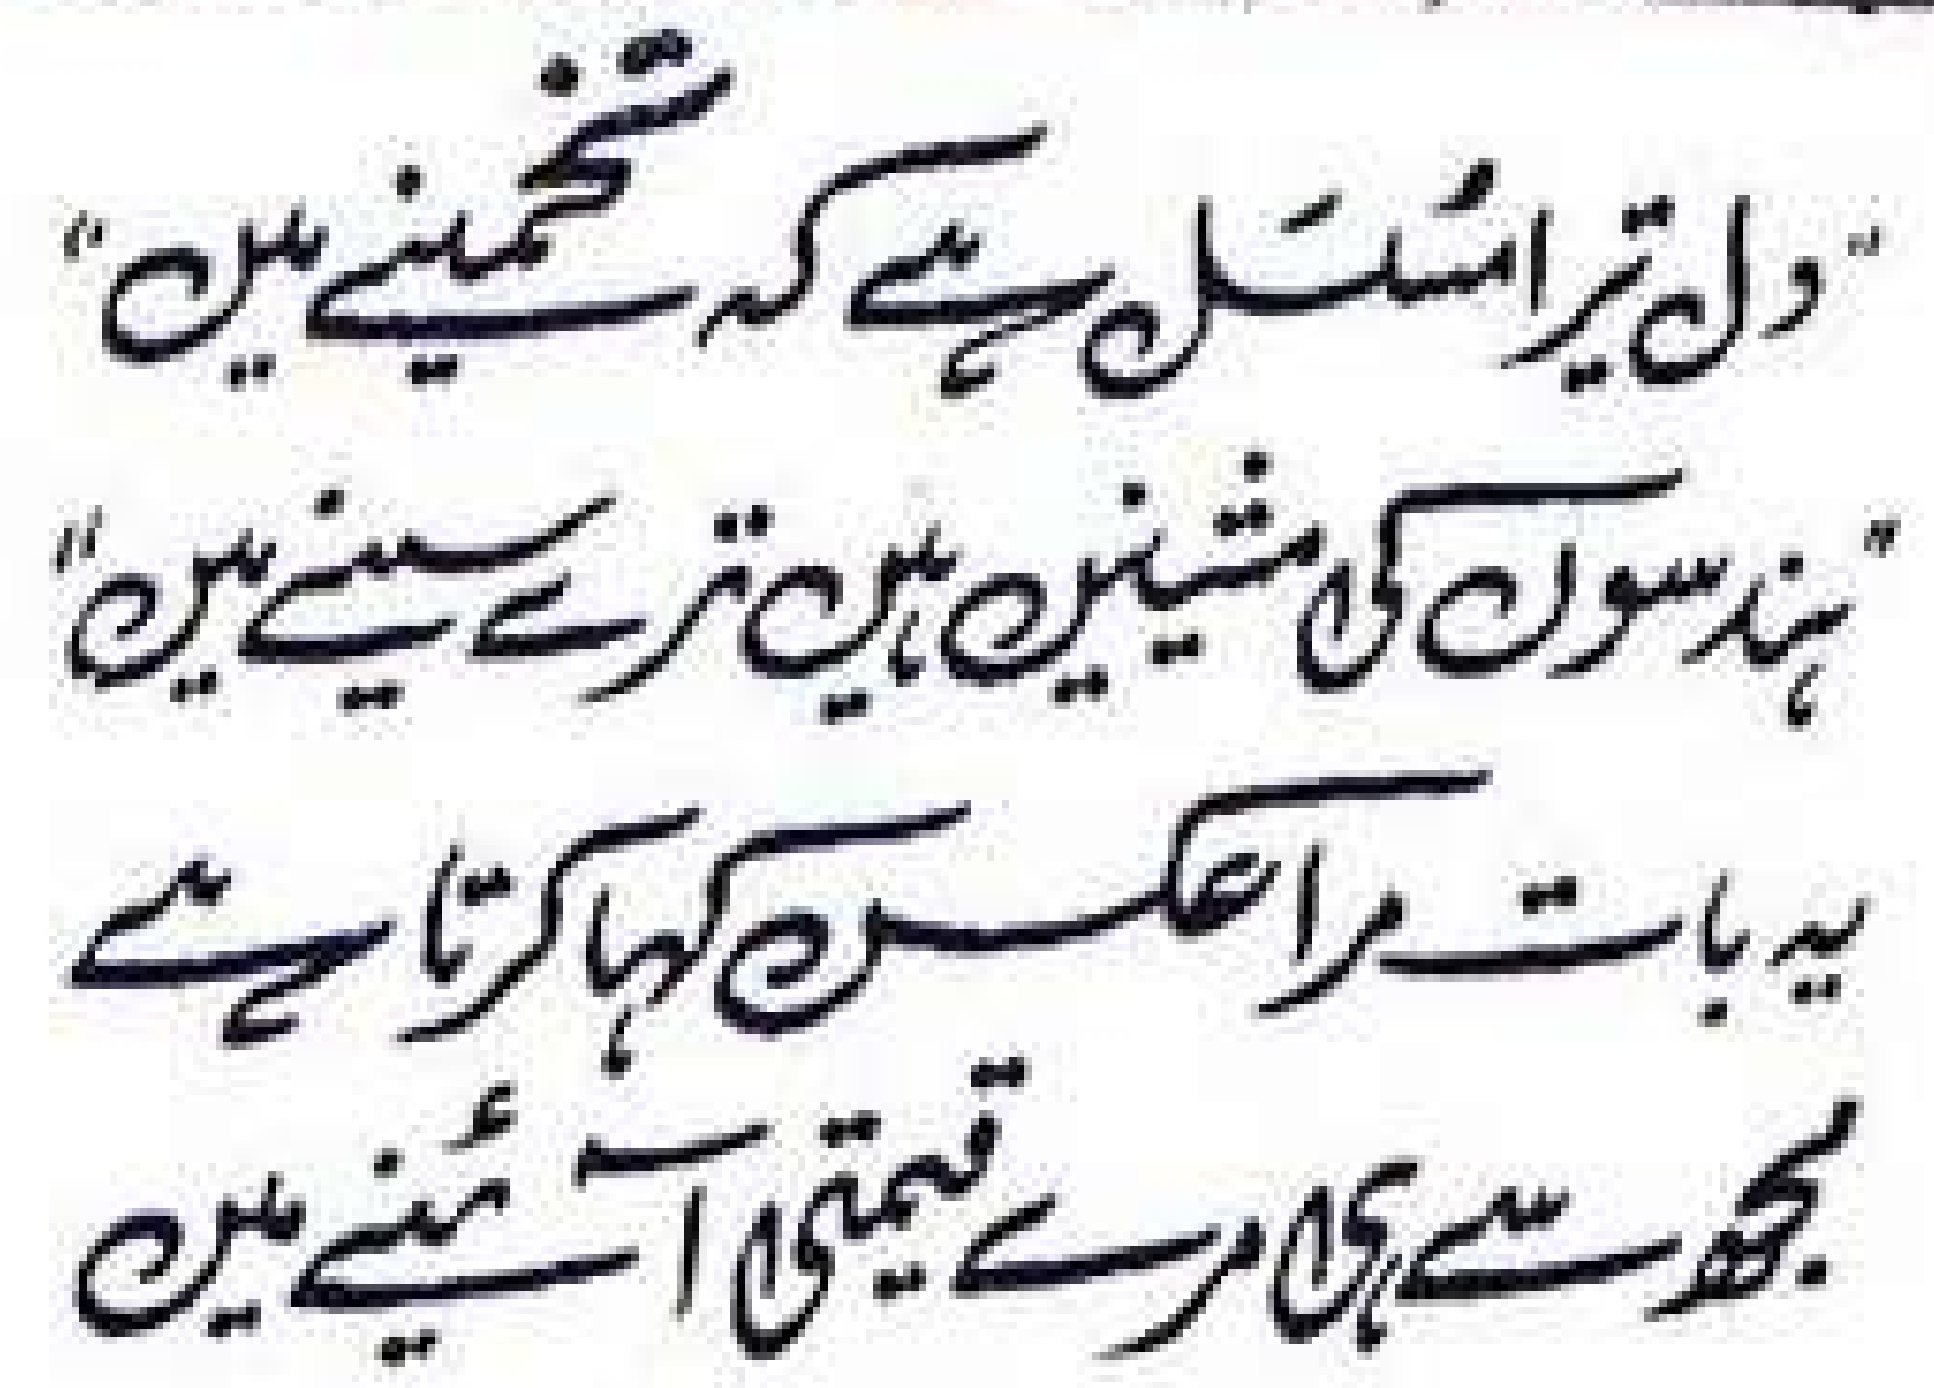 "دل تیرا مُستَل ہے کہ تخمینے میں"
"ہندسوں کی مشینیں ہیں ترے سینے میں"
یہ بات مرا عکس کہا کرتا ہے
مجھ سے ہی مرے قیمتی آئینے میں